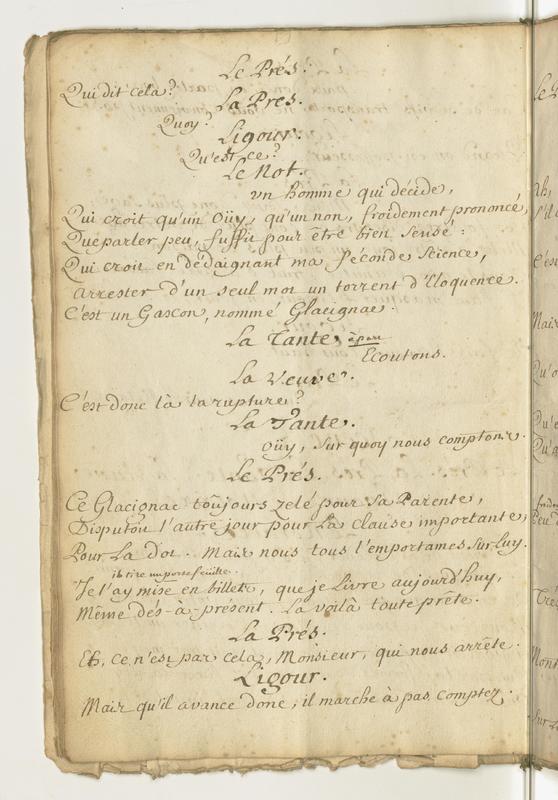 Le Prés.
Qui dit cela?
La Pres.
Quoy?
Ligour.
Qu'est ce?
Le Not.
un homme qui décide,
Qui croit qu'un Oüy, qu'un non, froidement prononcé,
Que parler peu, suffit pour être bien sensé:
Qui croit en dédaignant ma féconde Science,
arrester d'un seul mot un torrent d'Eloquence.
C'est un Gascon, nommé Glacignac.
La Tante, à part
Ecoutons.
La Veuve.
C'est donc là la rupture?
La Tante.
Oüy, sur quoy nous comptons.
Le Prés.
Ce Glacignac toûjours zelé pour sa Parente,
Disputoit l'autre jour pour la clause importante,
Pour La dot. Mais nous tous l'emportames sur Luy.
il tire un porte feuille.
Je l'ay mise en billets, que je Livre aujourd'huy,
Même dés-à-présent. La voilà toute prête.
La Prés.
Eh, ce n'est pas cela, Monsieur, qui nous arrête.
Ligour.
Mais qu'il avance donc, il marche à pas comptez.